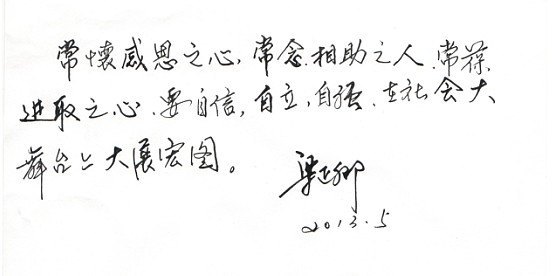 常怀感恩之心，常念相助之人，常葆
进取之心。要自信，自立，自强，在社会大
舞台上大展宏图。
梁卿
2013.5